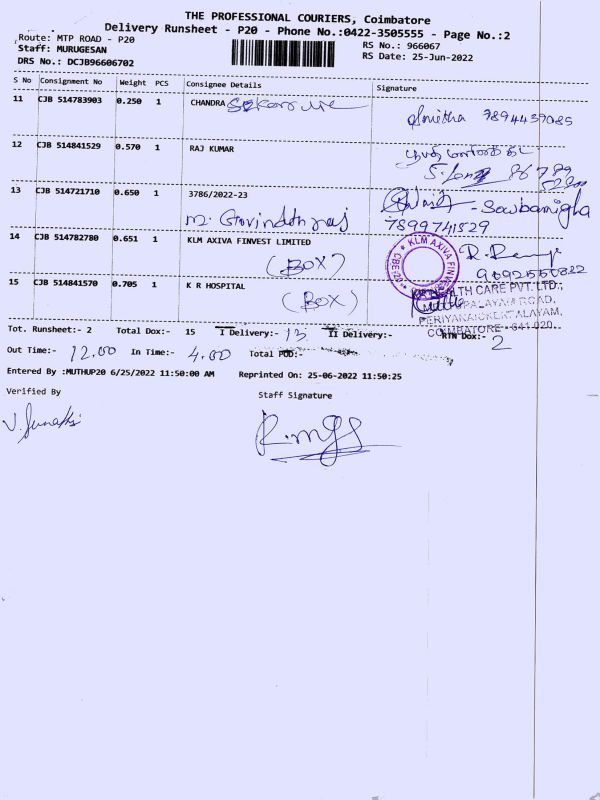 THE PROFESSIONAL COURIERS, Coimbatore
Delivery Runsheet - P20 - Phone No.:0422-3505555 - Page No.:2
Route: MTP ROAD - P20
Staff: MURUGESAN
DRS No.: DCJB96606702
RS No.: 966067
RS Date: 25-Jun-2022
S No Consignment No Weight PCS Consignee Details Signature
11 CJB 514783903 0.250 1 CHANDRA
7894437085
12 CJB 514841529 0.570 1 RAJ KUMAR
13 CJB 514721710 0.650 1 3786/2022-23
M. Govindathraj
- Sowbarnigha
7899741529
14 CJB 514782780 0.651 1 KLM AXIVA FINVEST LIMITED
(BOX)
KLM AXIVA FINVE
15 CJB 514841570 0.705 1 K R HOSPITAL
(BOX)
LTH CARE PVT. LTD.,
PALAYAM ROAD,
COIMBATORE - 641 020
Tot. Runsheet:- 2 Total Dox:- 15 I Delivery:- 13 II Delivery:- RTN Dox:- 2
Out Time:- 12.00 In Time:- 4.00 Total POD:-
Entered By :MUTHUP20 6/25/2022 11:50:00 AM Reprinted On: 25-06-2022 11:50:25
Verified By Staff Signature